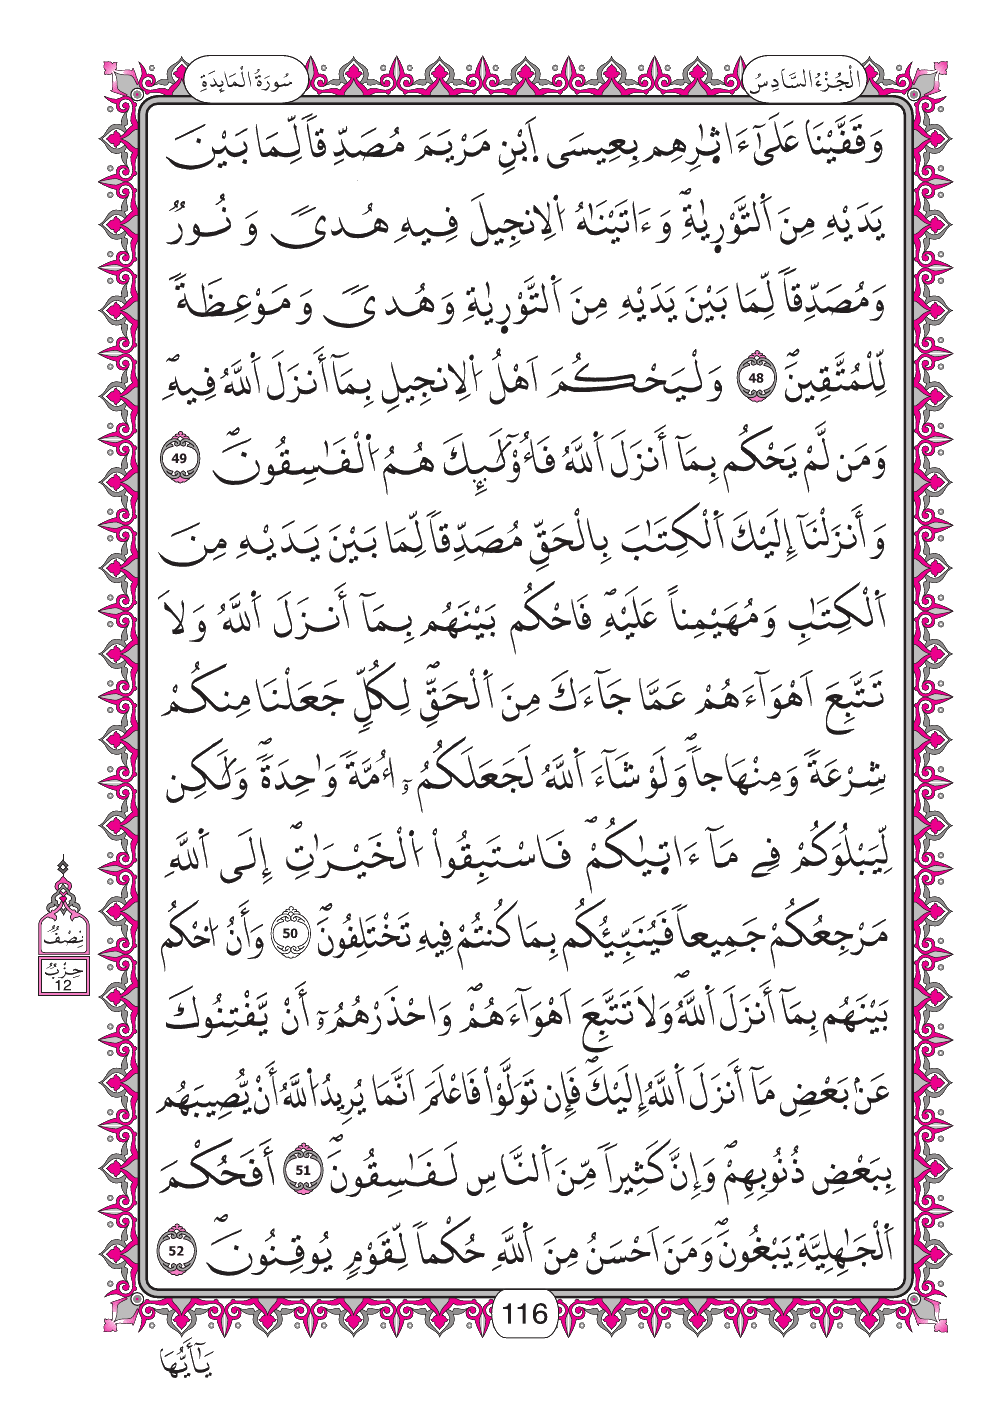 الْجُزْءُ السَّادِسُ
سُورَةُ الْمَائِدَةِ
وَقَفَّيْنَا عَلَىٰٓ ءَاثٰ۪رِهِم بِعِيسَى اَ۪بْنِ مَرْيَمَ مُصَدِّقاٗ لِّمَا بَيْنَ
يَدَيْهِ مِنَ اَ۬لتَّوْر۪يٰةِۖ وَءَاتَيْنَٰهُ اُ۬لِانجِيلَ فِيهِ هُدىٗ وَنُورٞ
وَمُصَدِّقاٗ لِّمَا بَيْنَ يَدَيْهِ مِنَ اَ۬لتَّوْر۪يٰةِ وَهُدىٗ وَمَوْعِظَةٗ
لِّلْمُتَّقِينَۖ 48 وَلْيَحْكُمَ اَهْلُ اُ۬لِانجِيلِ بِمَآ أَنزَلَ اَ۬للَّهُ فِيهِۖ
وَمَن لَّمْ يَحْكُم بِمَآ أَنزَلَ اَ۬للَّهُ فَأُوْلَٰٓئِكَ هُمُ اُ۬لْفَٰسِقُونَۖ 49
وَأَنزَلْنَآ إِلَيْكَ اَ۬لْكِتَٰبَ بِالْحَقِّ مُصَدِّقاٗ لِّمَا بَيْنَ يَدَيْهِ مِنَ
اَ۬لْكِتَٰبِ وَمُهَيْمِناً عَلَيْهِۖ فَاحْكُم بَيْنَهُم بِمَآ أَنزَلَ اَ۬للَّهُ وَلَا
تَتَّبِعَ اَهْوَآءَهُمْ عَمَّا جَآءَكَ مِنَ اَ۬لْحَقِّۖ لِكُلّٖ جَعَلْنَا مِنكُمْ
شِرْعَةٗ وَمِنْهَاجاٗۖ وَلَوْ شَآءَ اَ۬للَّهُ لَجَعَلَكُمُۥٓ أُمَّةٗ وَٰحِدَةٗۖ وَلَٰكِن
لِّيَبْلُوَكُمْ فِے مَآ ءَات۪يٰكُمْۖ فَاسْتَبِقُواْ اُ۬لْخَيْرَٰتِۖ إِلَى اَ۬للَّهِ
مَرْجِعُكُمْ جَمِيعاٗ فَيُنَبِّئُكُم بِمَا كُنتُمْ فِيهِ تَخْتَلِفُونَۖ 50 وَأَنُ اُ۟حْكُم
بَيْنَهُم بِمَآ أَنزَلَ اَ۬للَّهُۖ وَلَا تَتَّبِعَ اَهْوَآءَهُمْۖ وَاحْذَرْهُمُۥٓ أَنْ يَّفْتِنُوكَ
عَنۢ بَعْضِ مَآ أَنزَلَ اَ۬للَّهُ إِلَيْكَۖ فَإِن تَوَلَّوْاْ فَاعْلَمَ اَنَّمَا يُرِيدُ اُ۬للَّهُ أَنْ يُّصِيبَهُم
بِبَعْضِ ذُنُوبِهِمْۖ وَإِنَّ كَثِيراٗ مِّنَ اَ۬لنَّاسِ لَفَٰسِقُونَۖ 51 أَفَحُكْمَ
اَ۬لْجَٰهِلِيَّةِ يَبْغُونَۖ وَمَنَ اَحْسَنُ مِنَ اَ۬للَّهِ حُكْماٗ لِّقَوْمٖ يُوقِنُونَۖ 52
نِصْفُ
حِزْبُ
12
116
يَٰٓأَيُّهَا